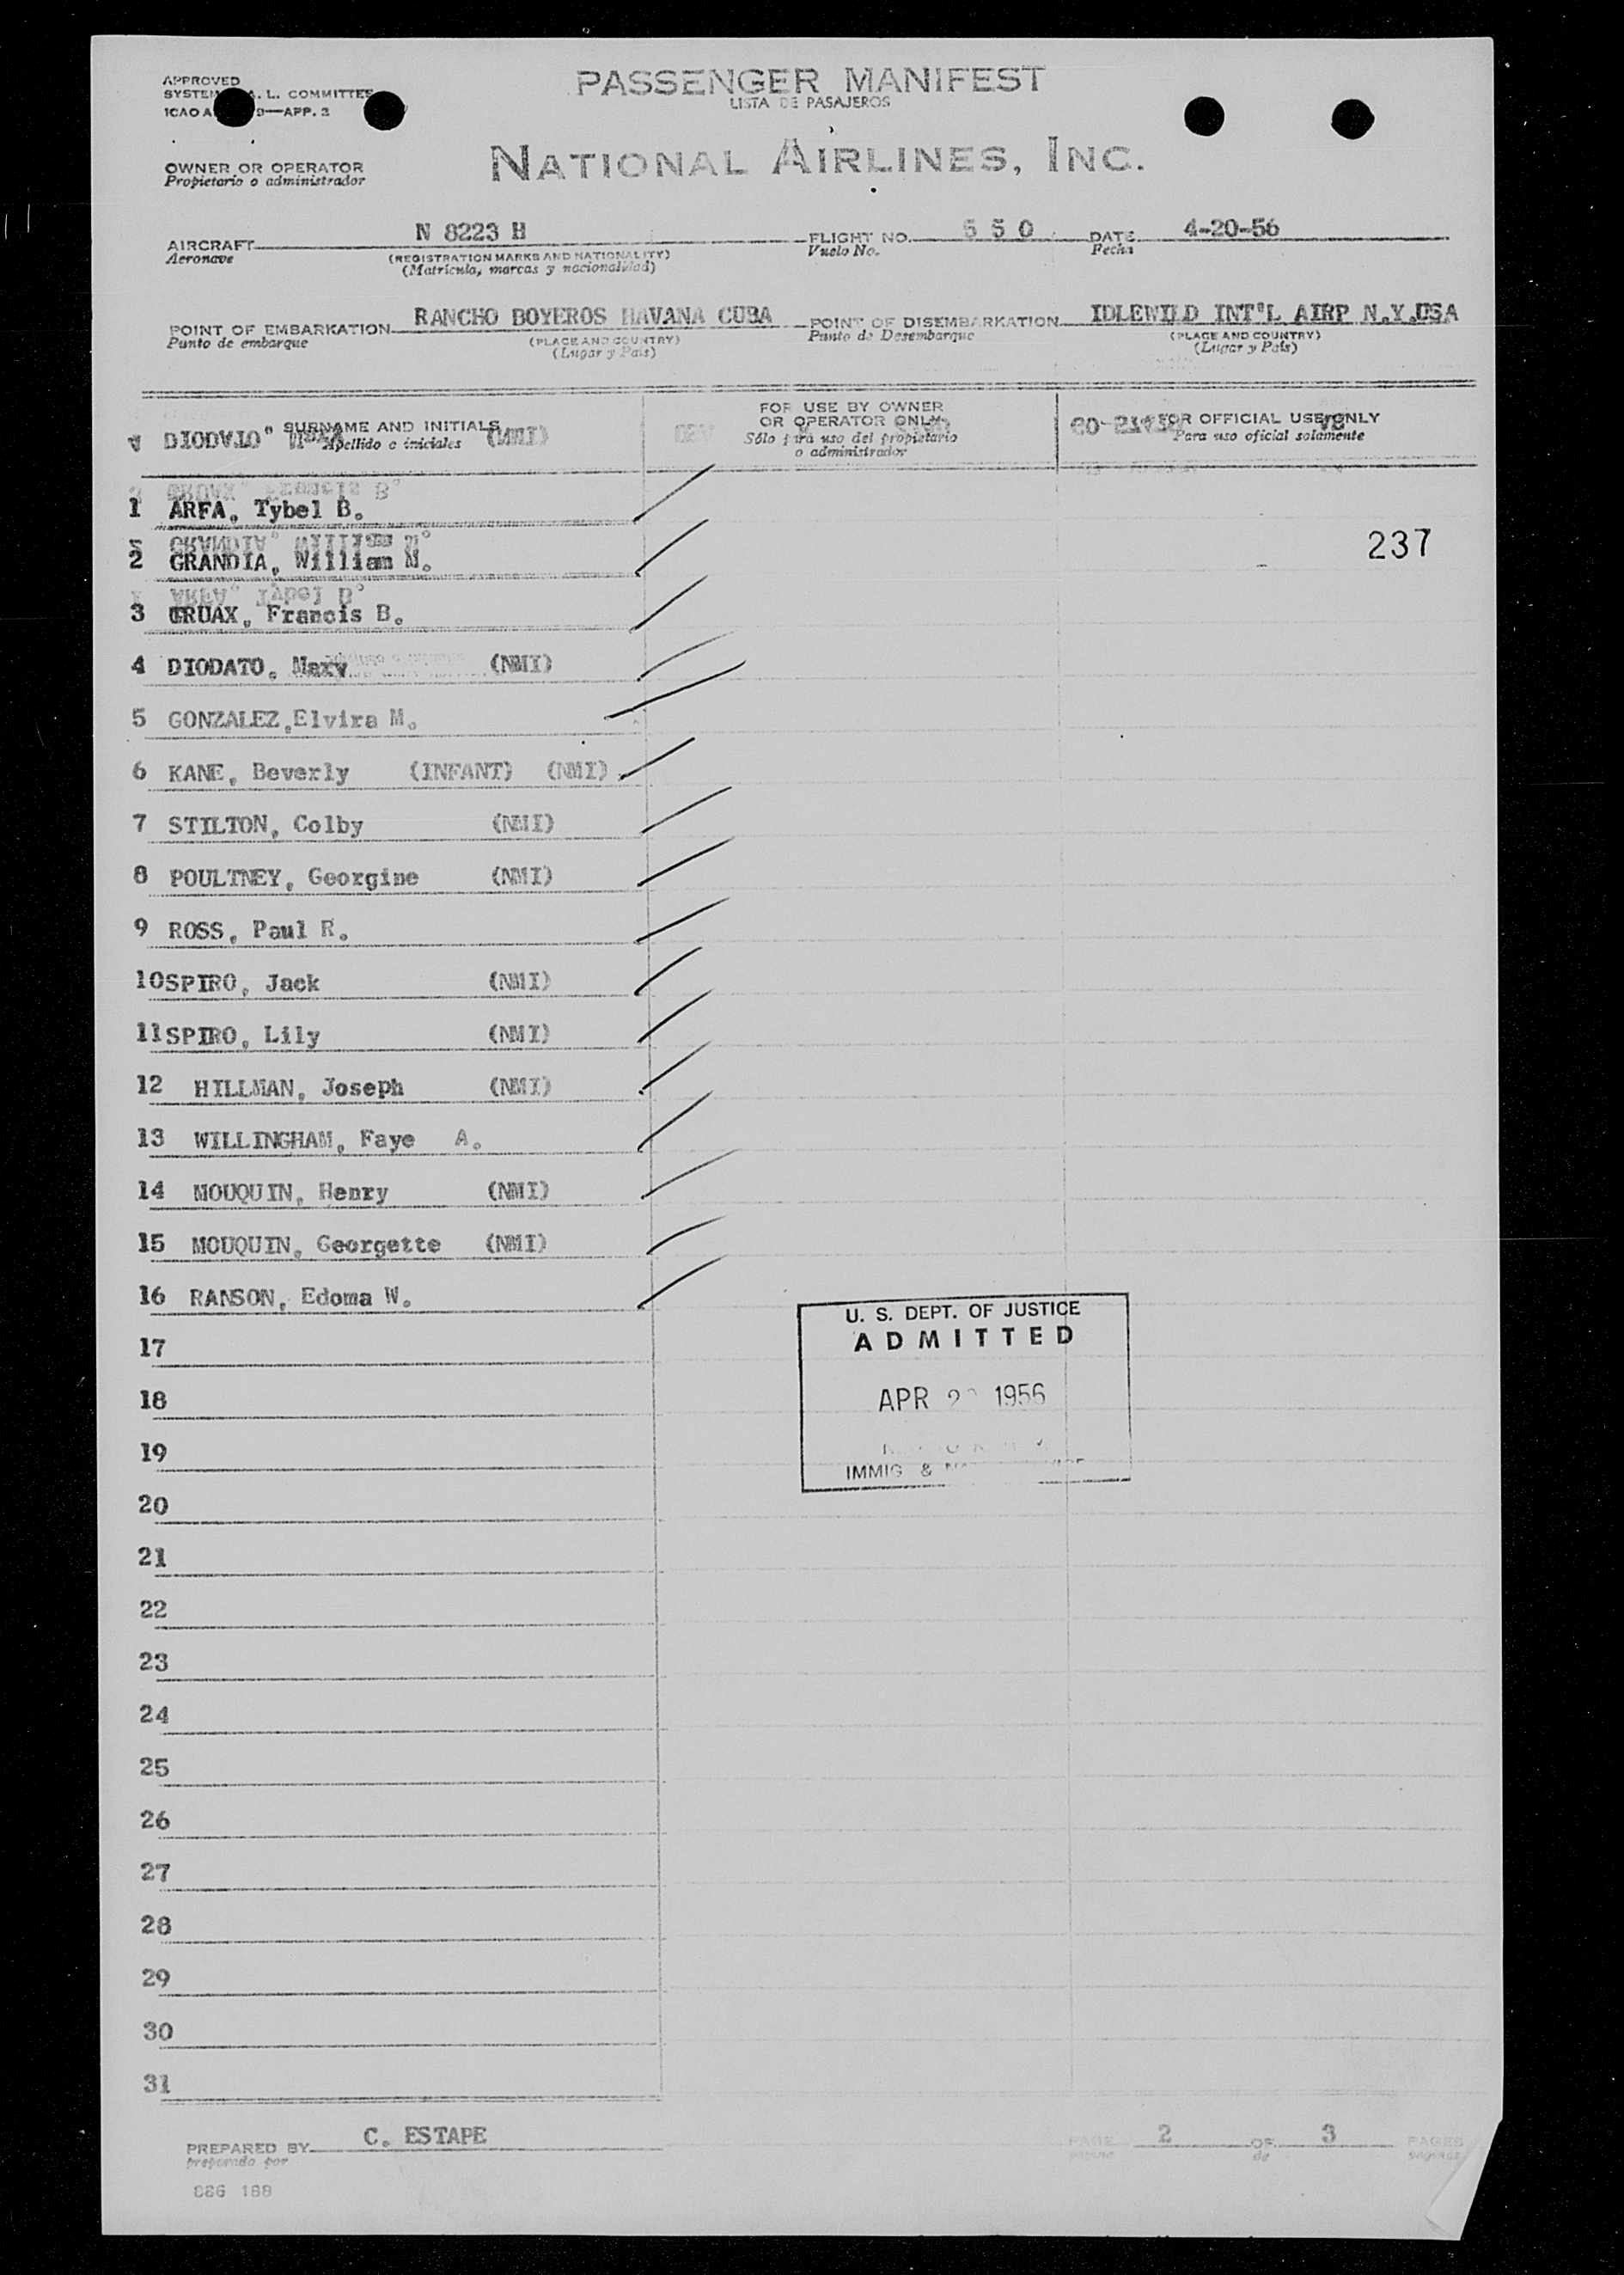 PASSENGER MANIFEST
LISTA DE PASAJEROS
APPROVED
L. COMMITTEE
ICAO 9—APP. 3
OWNER OR OPERATOR
Propietario o administrador
NATIONAL AIRLINES, INC.
AIRCRAFT N 8223 H FLIGHT NO. 5 5 0 DATE 4-20-56
Aeronave (REGISTRATION MARKS AND NATIONALITY) Vuelo No. Fecha
(Matrícula, marcas y nacionalidad)
POINT OF EMBARKATION RANCHO BOYEROS HAVANA CUBA POINT OF DISEMBARKATION IDLEWILD INT'L AIRP N.Y.USA
Punto de embarque (PLACE AND COUNTRY) Punto de Desembarque (PLACE AND COUNTRY)
(Lugar y País) (Lugar y País)
SURNAME AND INITIALS FOR USE BY OWNER FOR OFFICIAL USE ONLY
Apellido e iniciales OR OPERATOR ONLY Para uso oficial solamente
Sólo para uso del propietario
o administrador
1 ARFA, Tybel B.
2 GRANDIA, William M. 237
3 Francis B.
4 DIODATO, Mary (NMI)
5 GONZALEZ, Elvira M.
6 KANE, Beverly (INFANT) (NMI)
7 STILTON, Colby (NMI)
8 POULTNEY, Georgine (NMI)
9 ROSS, Paul R.
10 SPIRO, Jack (NMI)
11 SPIRO, Lily (NMI)
12 HILLMAN, Joseph (NMI)
13 WILLINGHAM, Faye A.
14 MOUQUIN, Henry (NMI)
15 MOUQUIN, Georgette (NMI)
16 RANSON, Edoma W.
U. S. DEPT. OF JUSTICE
ADMITTED
17
APR 1956
18
19
IMMIG &
20
21
22
23
24
25
26
27
28
29
30
31
PREPARED BY C. ESTAPE PAGE 2 OF 3 PAGES
preparado por de
186 188